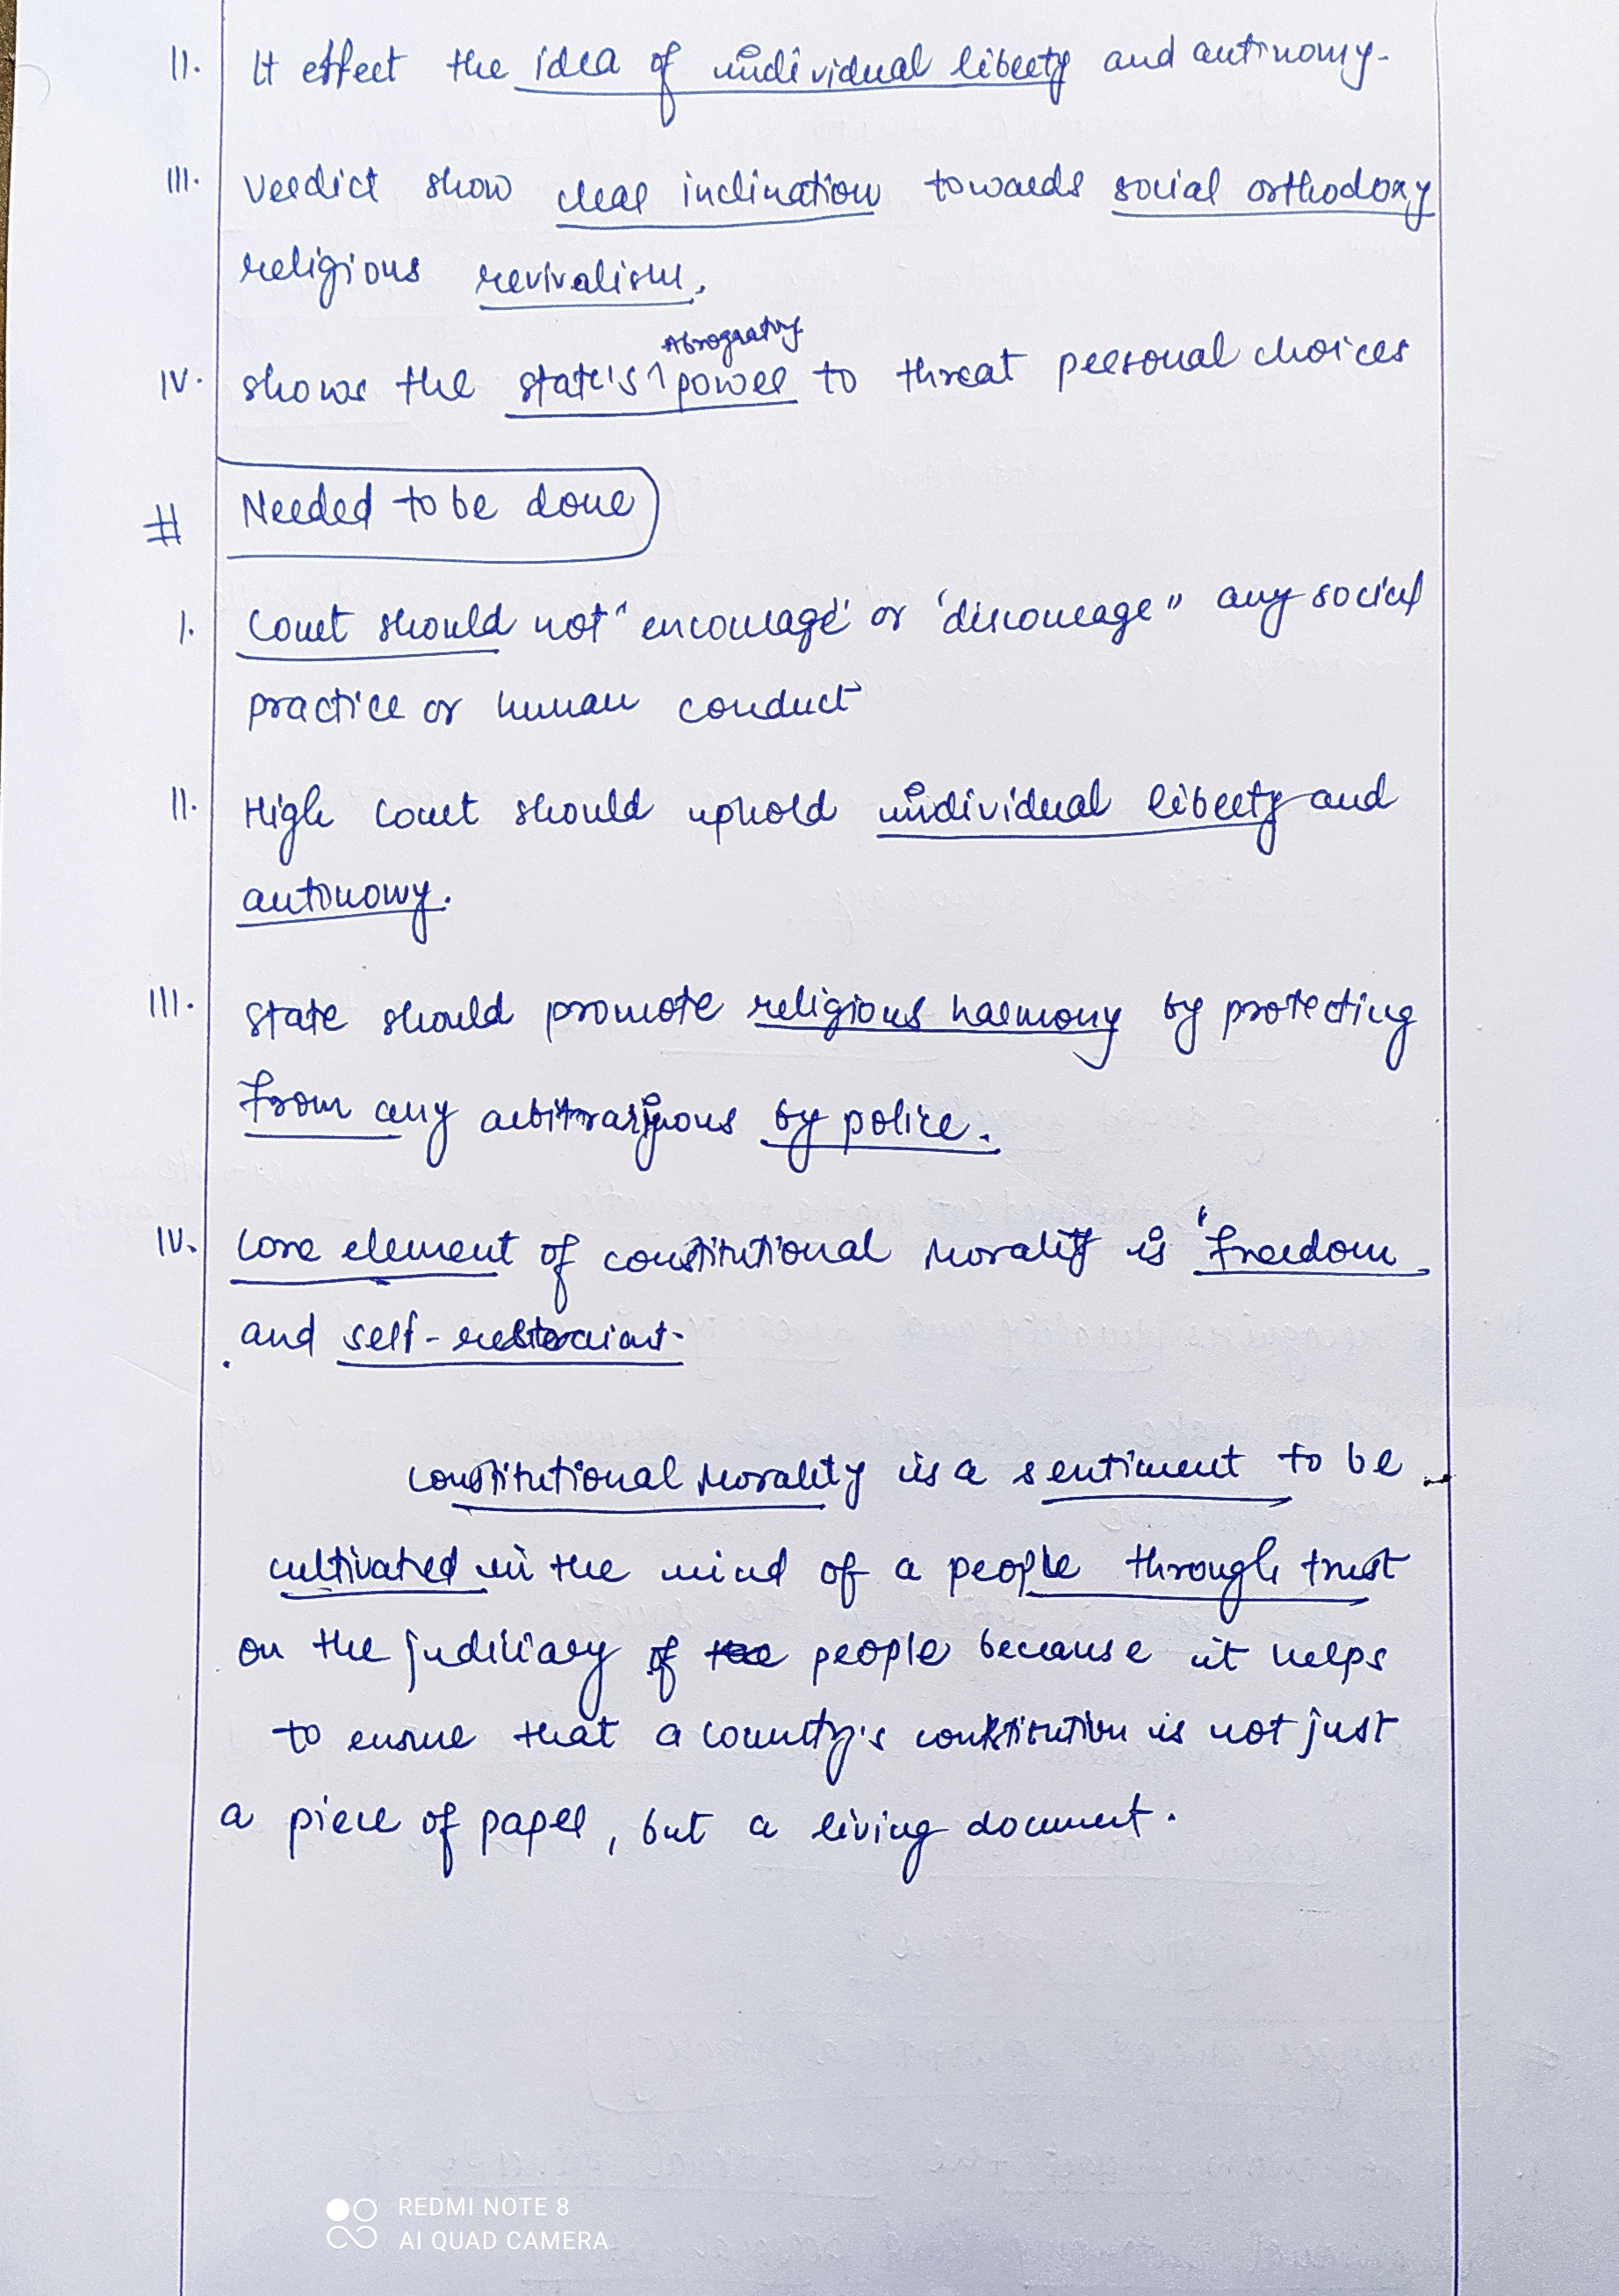 II. It effect the idea of individual liberty and autonomy.
III. Verdict show clear inclination towards social orthodoxy
religious revivalism.
IV. shows the state's power to threat personal choices
# Needed to be done
I. Court should not "encourage' or 'discourage" any social
practice or human conduct
II. High Court should uphold individual liberty and
autonomy.
III. State should promote religious harmony by protecting
from any by police.
IV. Core element of constitutional Morality is 'freedom
and self-restraint.
Constitutional Morality is a sentiment to be
cultivated in the mind of a people through trust
on the judiciary of people because it helps
to ensure that a country's constitution is not just
a piece of paper, but a living document.
REDMI NOTE 8
AI QUAD CAMERA